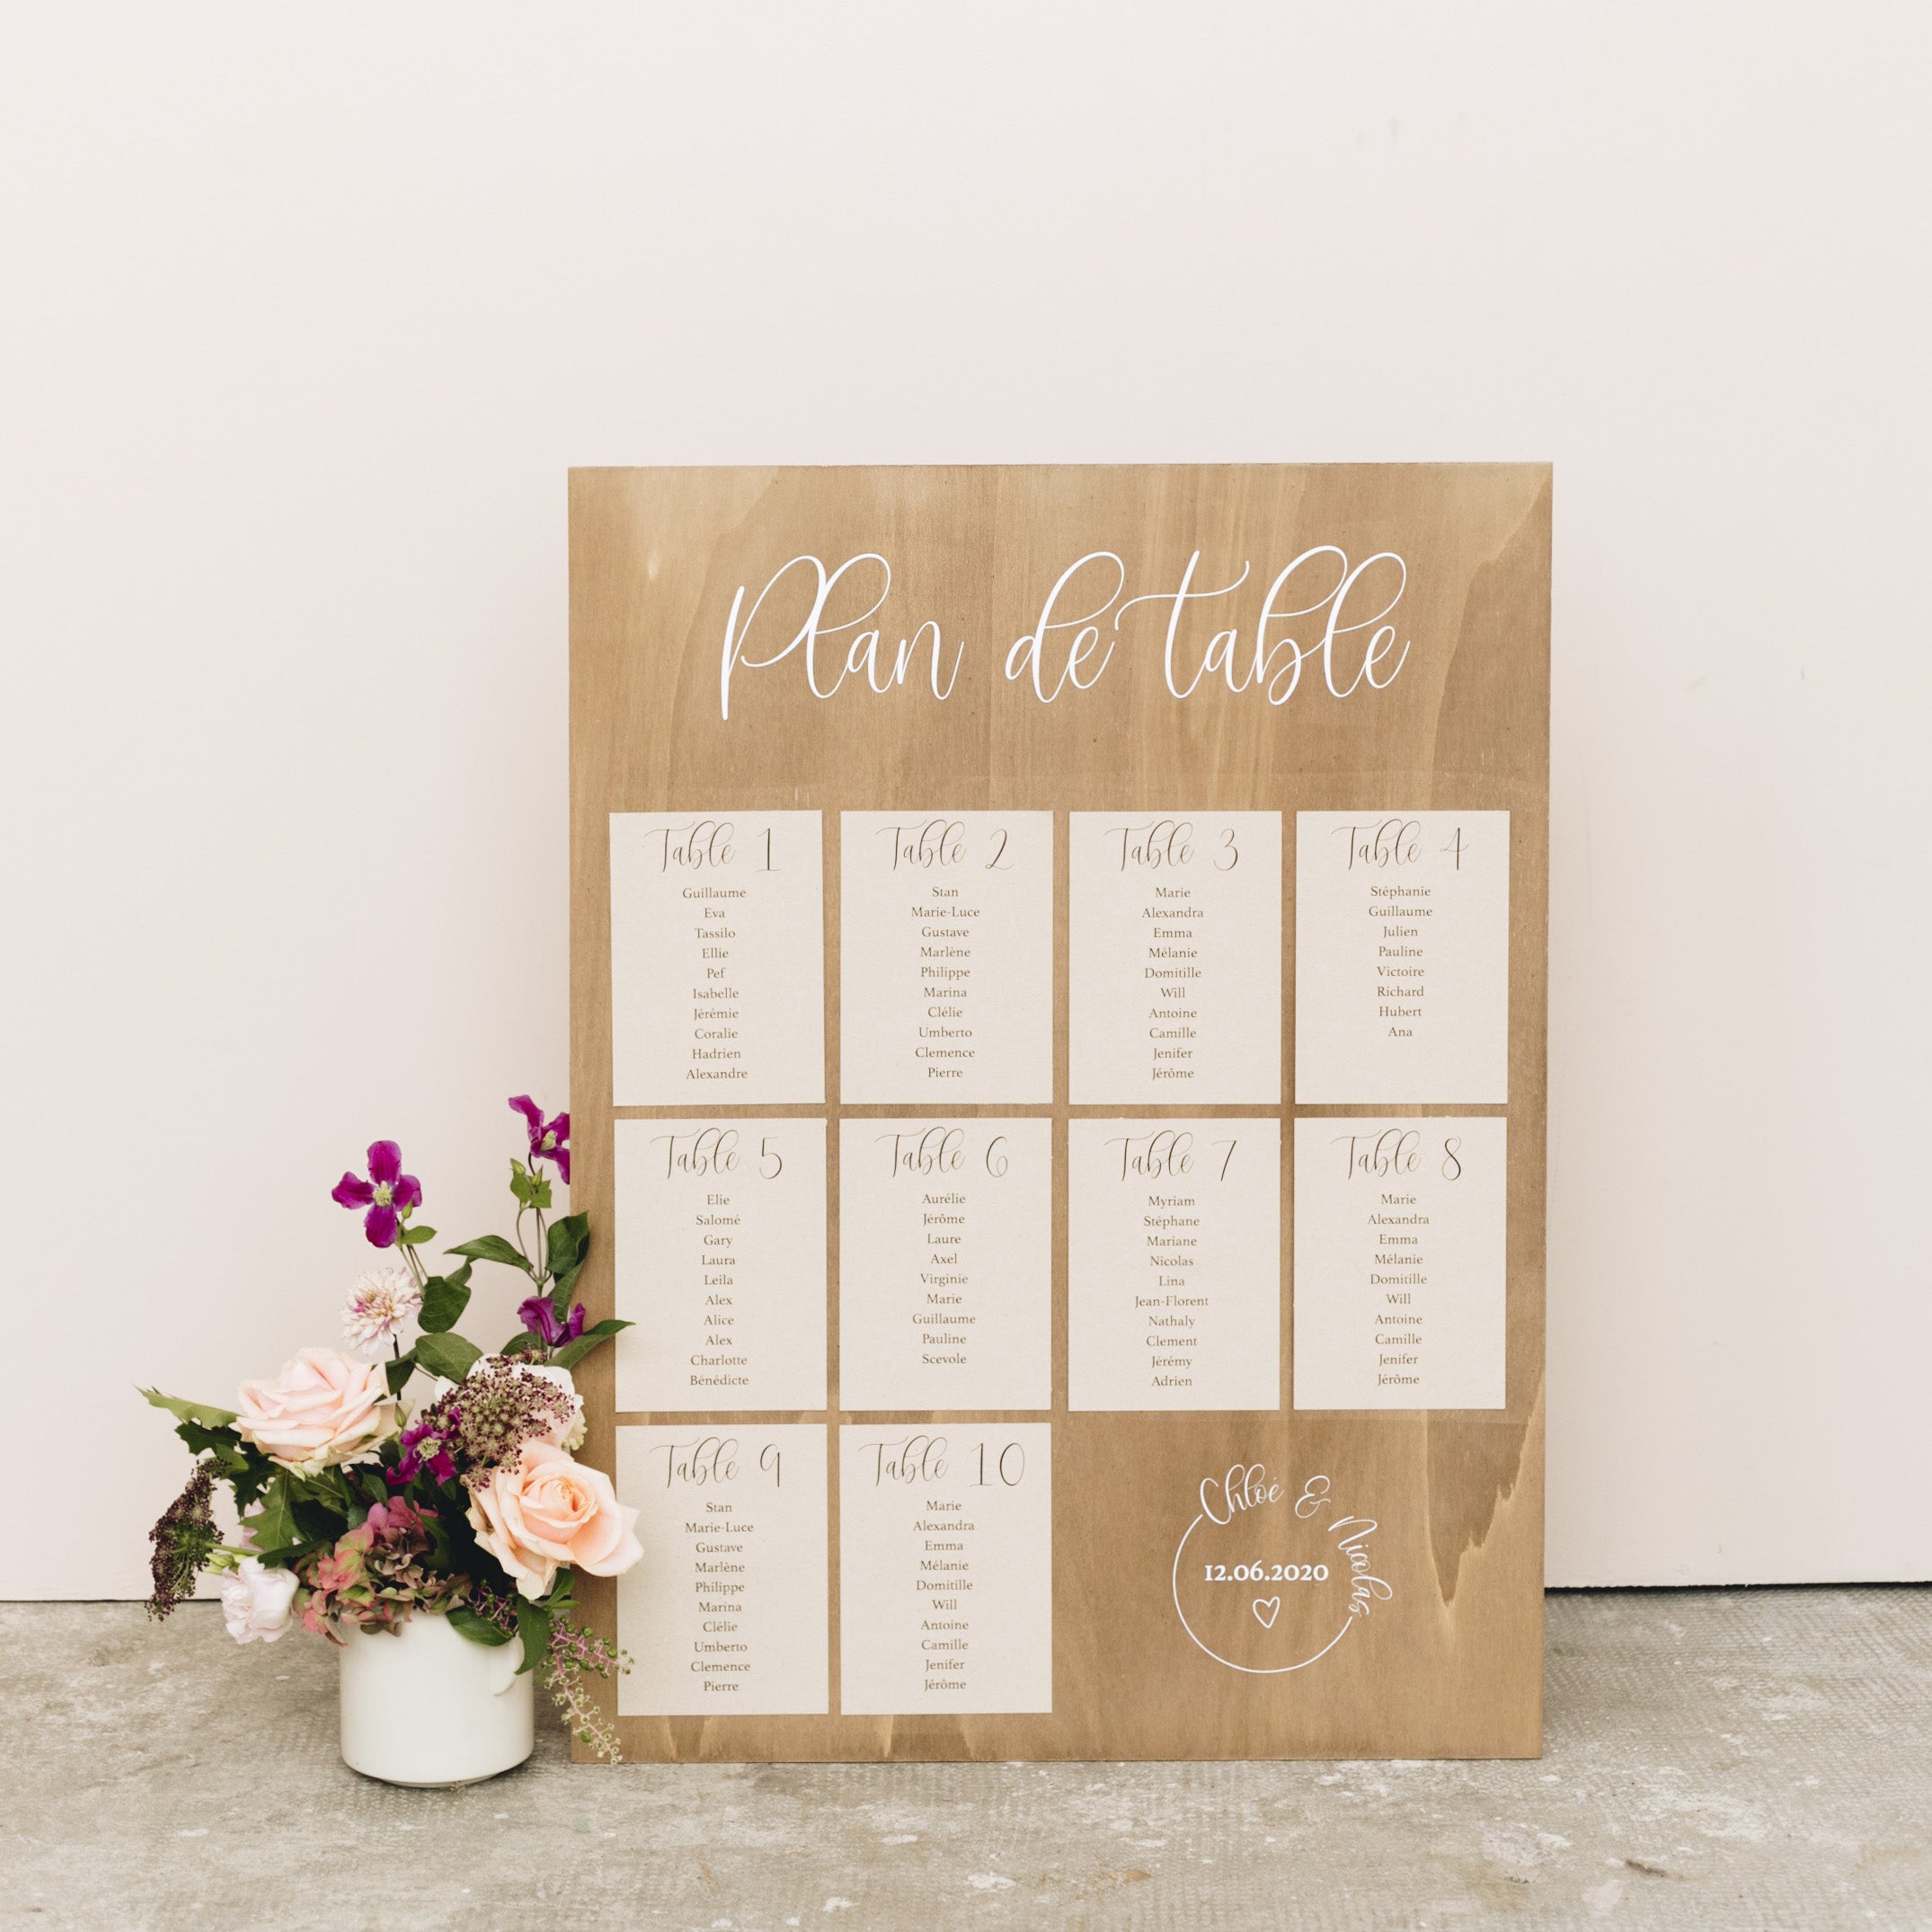 Plan de table
Table 1
Guillaume
Eva
Tassilo
Ellie
Pef
Isabelle
Jérémie
Coralie
Hadrien
Alexandre
Table 2
Stan
Marie-Luce
Gustave
Marlène
Philippe
Marina
Clélie
Umberto
Clemence
Pierre
Table 3
Marie
Alexandra
Emma
Mélanie
Domitille
Will
Antoine
Camille
Jenifer
Jérôme
Table 4
Stéphanie
Guillaume
Julien
Pauline
Victoire
Richard
Hubert
Ana
Table 5
Elie
Salomé
Gary
Laura
Leila
Alex
Alice
Alex
Charlotte
Bénédicte
Table 6
Aurélie
Jérôme
Laure
Axel
Virginie
Marie
Guillaume
Pauline
Scevole
Table 7
Myriam
Stéphane
Mariane
Nicolas
Lina
Jean-Florent
Nathaly
Clement
Jérémy
Adrien
Table 8
Marie
Alexandra
Emma
Mélanie
Domitille
Will
Antoine
Camille
Jenifer
Jérôme
Table 9
Stan
Marie-Luce
Gustave
Marlène
Philippe
Marina
Clélie
Umberto
Clemence
Pierre
Table 10
Marie
Alexandra
Emma
Mélanie
Domitille
Will
Antoine
Camille
Jenifer
Jérôme
Chloé & Nicolas
12.06.2020